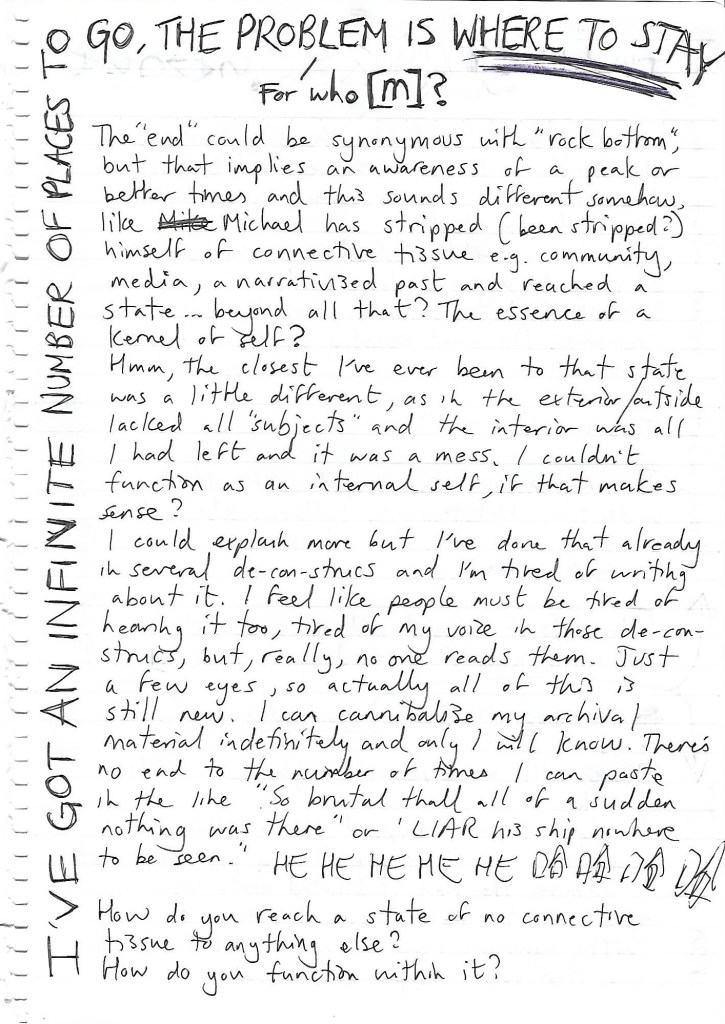 I'VE GOT AN INFINITE NUMBER OF PLACES TO
GO, THE PROBLEM IS WHERE TO STAY
For who [m]?
The "end" could be synonymous with "rock bottom",
but that implies an awareness of a peak or
better times and this sounds different somehow,
like Mike Michael has stripped (been stripped?)
himself of connective tissue e.g. community,
media, a narrativised past and reached a
state... beyond all that? The essence of a
kernel of self?
Hmm, the closest I've ever been to that state
was a little different, as in the exterior/outside
lacked all "subjects" and the interior was all
I had left and it was a mess. I couldn't
function as an internal self, if that makes
sense?
I could explain more but I've done that already
in several de-con-strucs and I'm tired of writing
about it. I feel like people must be tired of
hearing it too, tired of my voice in those de-con-
strucs, but, really, no one reads them. Just
a few eyes, so actually all of this is
still new. I can cannibalise my archival
material indefinitely and only I will know. There's
no end to the number of times I can paste
in the line "So brutal thall all of a sudden
nothing was there" or 'LIAR his ship nowhere
to be seen." HE HE HE HE HE
How do you reach a state of no connective
tissue to anything else?
How do you function within it?